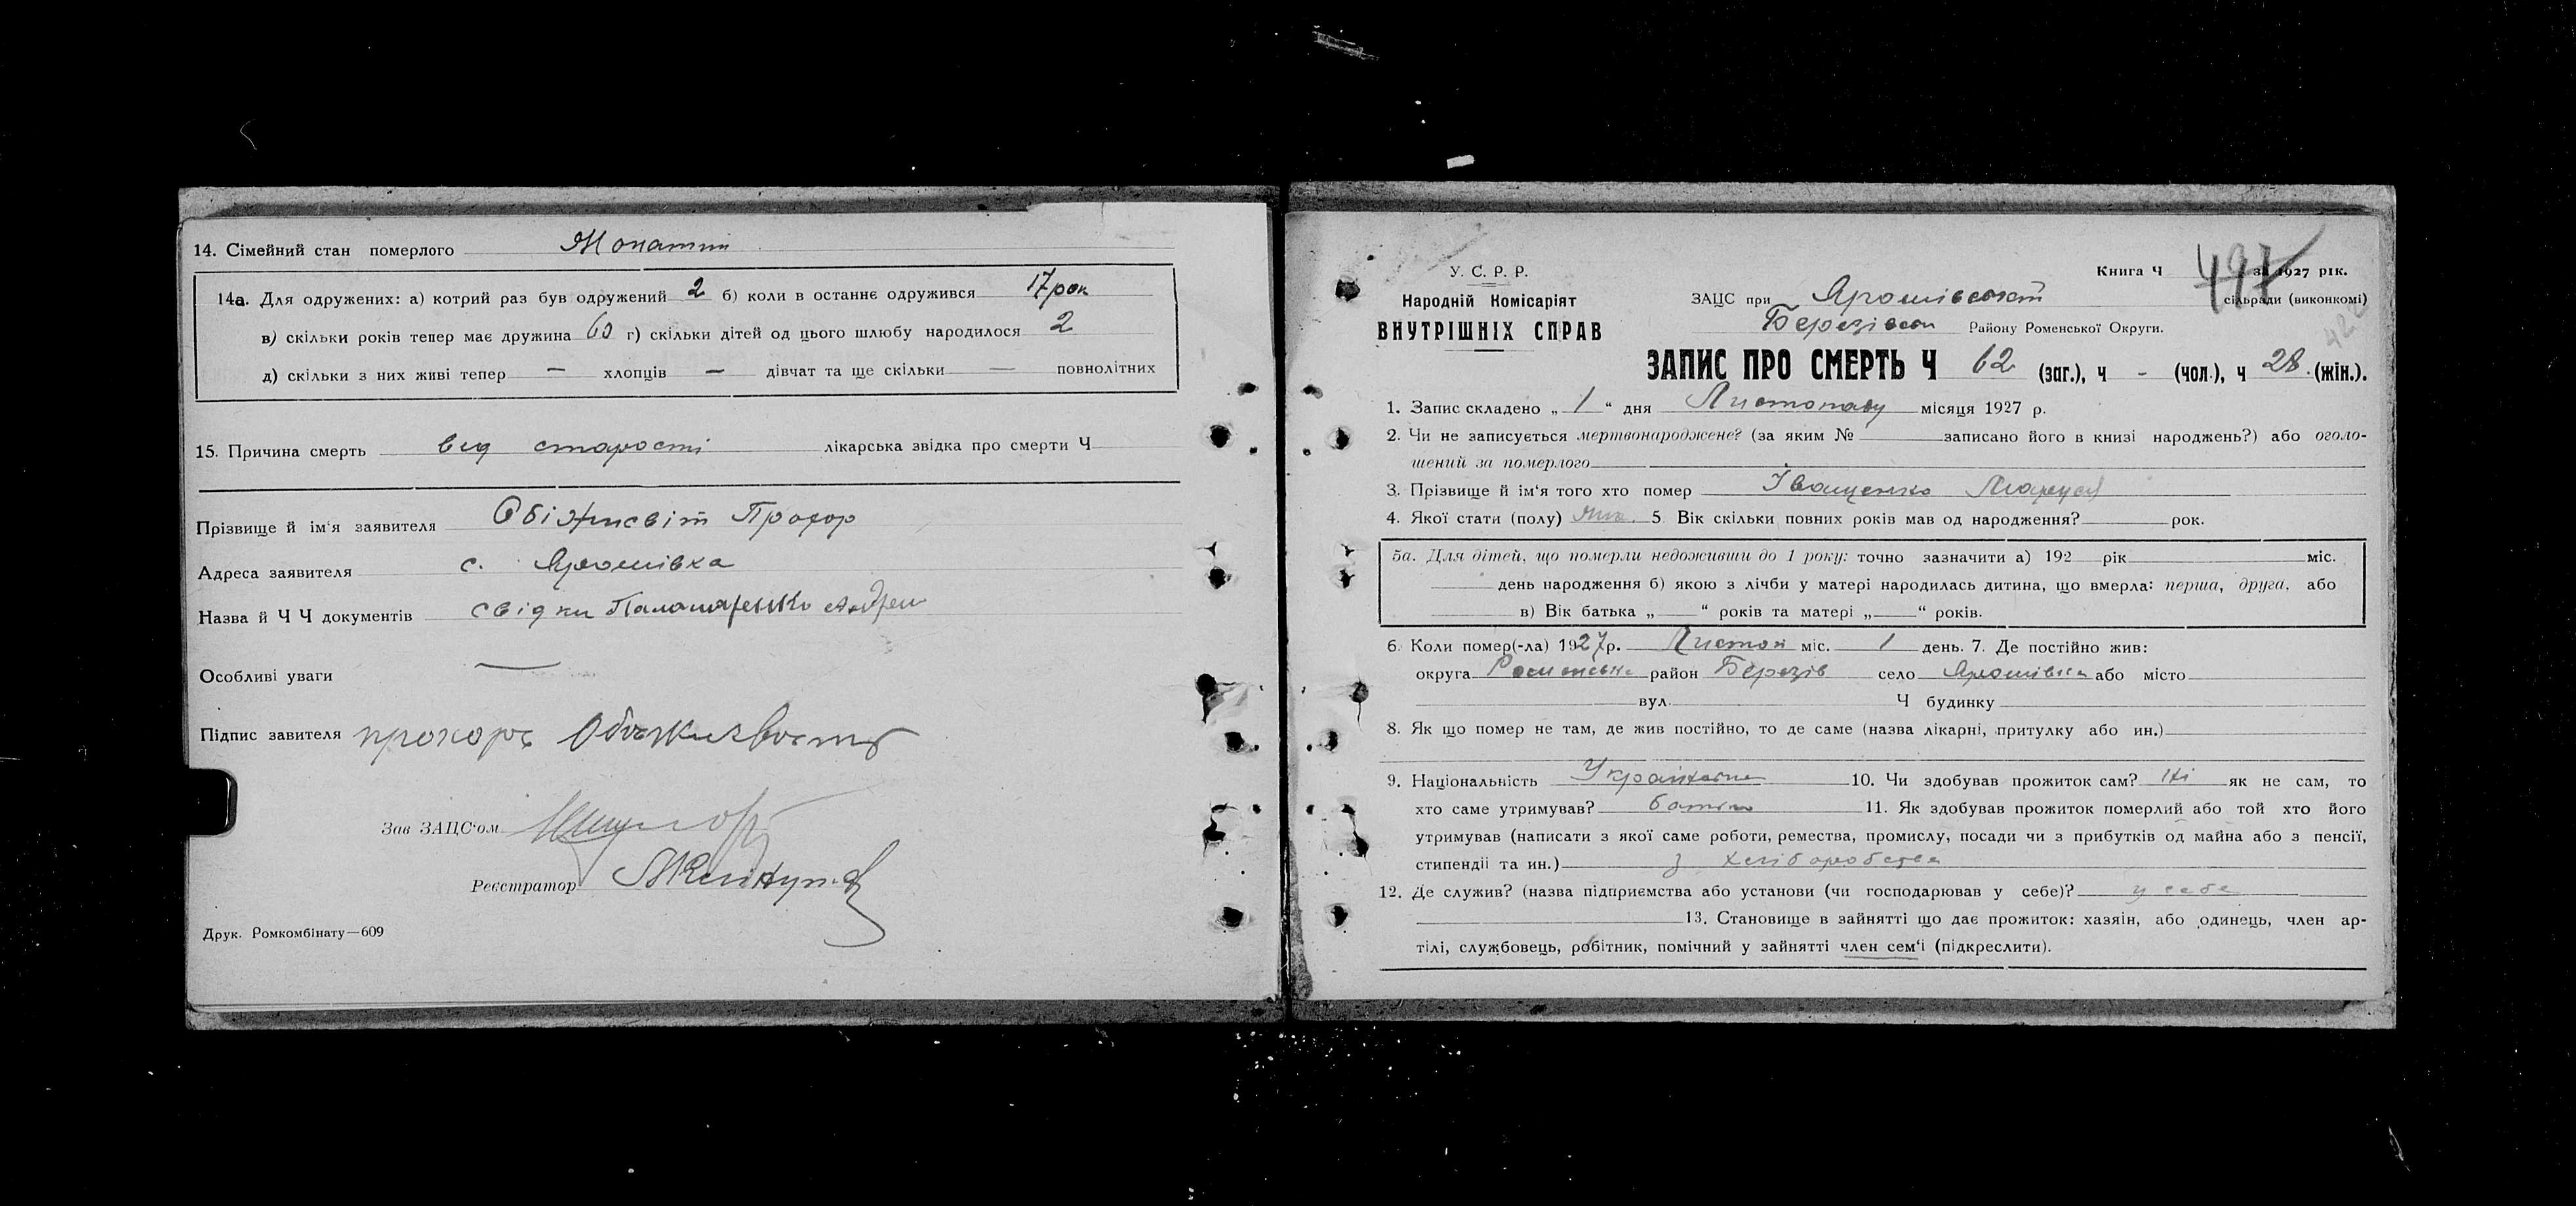 14. Сімейний стан померлого Жонатий
14а. Для одружених: а) котрий раз був одружений 2 б) коли в останнє одружився 17 рок
в) скільки років тепер має дружина 60 г) скільки дітей од цього шлюбу народилося 2
д) скільки з них живі тепер — хлопців — дівчат та ще скільки — повнолітних
15. Причина смерть від старости лікарська звідка про смерти Ч
Прізвище й ім‘я заявителя Обіжисвіт Прохор
Адреса заявителя с. Ярошівка
Назва й Ч Ч документів свідки Паламаренко Андрей
Особливі уваги —
Підпис завителя прохоръ
Зав ЗАЦС‘ом
Реєстратор
Друк. Ромкомбінату—609
У. С. Р. Р.
Народній Комісаріят
ВНУТРІШНІХ СПРАВ
Книга Ч 497 за 1927 рік.
422
ЗАЦС при Ярошівскій сільради (виконкомі)
Березівськ Району Роменської Округи.
ЗАПИС ПРО СМЕРТЬ Ч 62 (заг.), ч - (чол.), ч 28 (жін.).
1. Запис складено „ 1 “ дня Листопаду місяця 1927 р.
2. Чи не записується мертвонароджене? (за яким № записано його в книзі народжень?) або оголо-
шений за померлого
3. Прізвище й ім‘я того хто помер Іващенко Маруся
4. Якої стати (полу) Жін. 5 Вік скільки повних років мав од народження? рок.
5а. Для дітей, що померли недоживши до 1 року: точно зазначити а) 192 рік міс.
день народження б) якою з лічби у матері народилась дитина, що вмерла: перша, друга, або
в) Вік батька „ “ років та матері „ “ років.
6. Коли помер(-ла) 1927р. Листоп міс. 1 день. 7. Де постійно жив:
округа Роменська район Березів село Ярошівка або місто
вул. Ч будинку
8. Як що помер не там, де жив постійно, то де саме (назва лікарні, притулку або ин.)
9. Національність Українська 10. Чи здобував прожиток сам? Ні як не сам, то
хто саме утримував? батьки 11. Як здобував прожиток померлий або той хто його
утримував (написати з якої саме роботи, ремества, промислу, посади чи з прибутків од майна або з пенсії,
стипендії та ин.) з хліборобства
12. Де служив? (назва підприємства або установи (чи господарював у себе)? у себе
13. Становище в зайнятті що дає прожиток: хазяін, або одинець, член ар-
тілі, службовець, робітник, помічний у зайнятті член сем‘і (підкреслити).